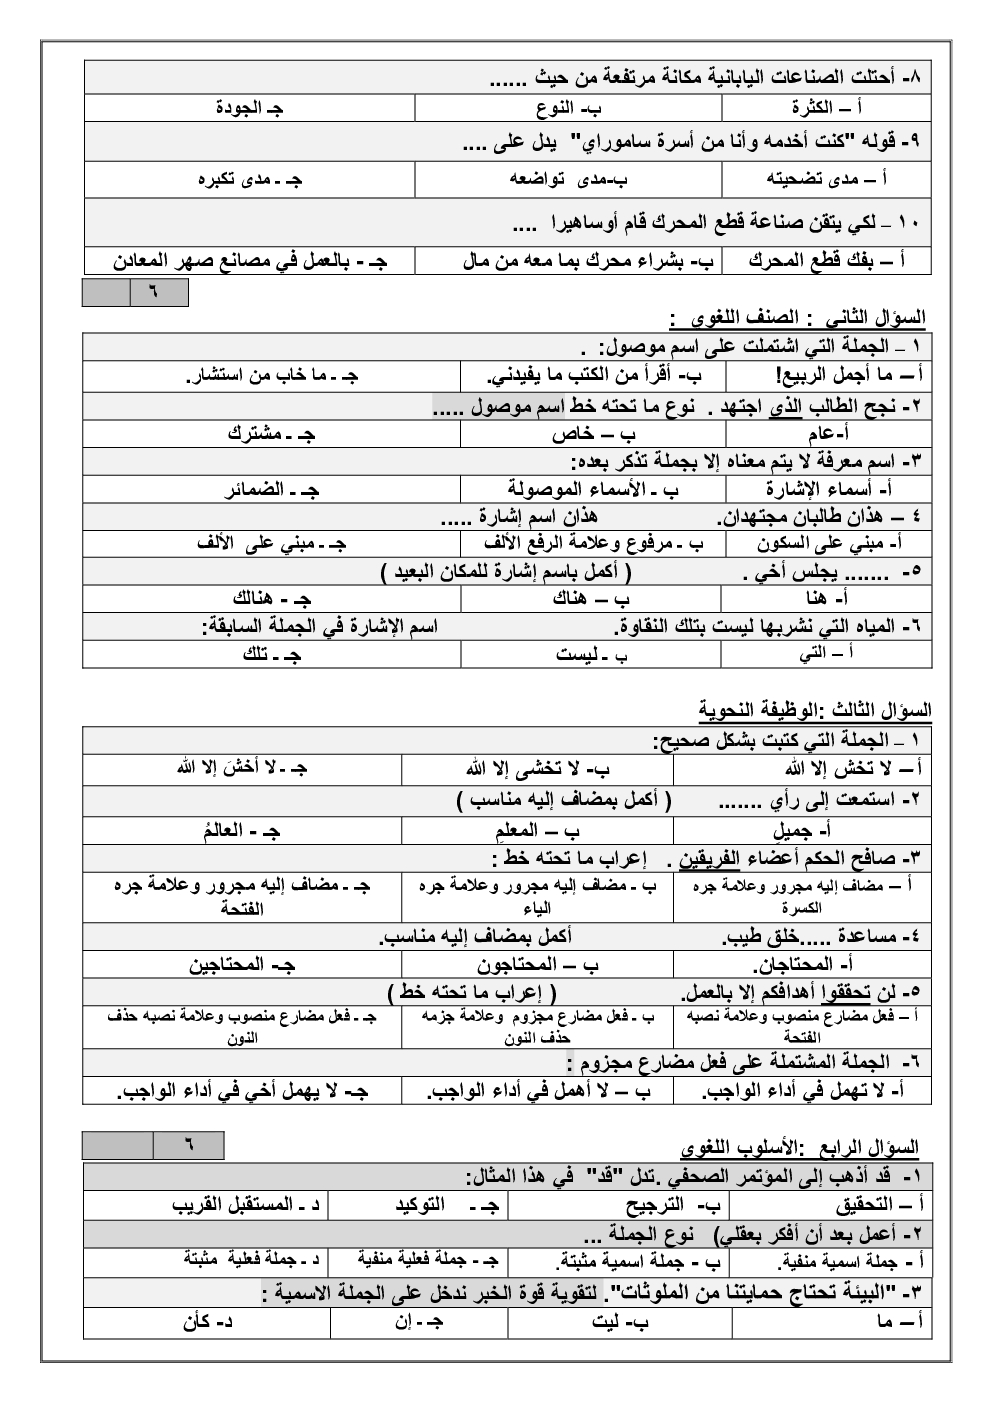 ٨- أحتلت الصناعات اليابانية مكانة مرتفعة من حيث ......
أ – الكثرة ب- النوع جـ الجودة
٩- قوله "كنت أخدمه وأنا من أسرة ساموراي" يدل على ....
أ – مدى تضحيته ب-مدى تواضعه جـ - مدى تكبره
١٠ – لكي يتقن صناعة قطع المحرك قام أوساهيرا ....
أ – بفك قطع المحرك ب- بشراء محرك بما معه من مال جـ - بالعمل في مصانع صهر المعادن
٦
السؤال الثاني : الصنف اللغوي :
١ – الجملة التي اشتملت على اسم موصول: .
أ – ما أجمل الربيع! ب- أقرأ من الكتب ما يفيدني. جـ - ما خاب من استشار.
٢- نجح الطالب الذي اجتهد . نوع ما تحته خط اسم موصول .....
أ-عام ب – خاص جـ - مشترك
٣- اسم معرفة لا يتم معناه إلا بجملة تذكر بعده:
أ- أسماء الإشارة ب - الأسماء الموصولة جـ - الضمائر
٤ – هذان طالبان مجتهدان. هذان اسم إشارة .....
أ- مبني على السكون ب - مرفوع وعلامة الرفع الألف جـ - مبني على الألف
٥- ....... يجلس أخي . ( أكمل باسم إشارة للمكان البعيد )
أ- هنا ب – هناك جـ - هنالك
٦- المياه التي نشربها ليست بتلك النقاوة. اسم الإشارة في الجملة السابقة:
أ – التي ب - ليست جـ - تلك
السؤال الثالث :الوظيفة النحوية
١ – الجملة التي كتبت بشكل صحيح:
أ – لا تخش إلا الله ب- لا تخشى إلا الله جـ - لا أخشَ إلا الله
٢- استمعت إلى رأي ....... ( أكمل بمضاف إليه مناسب )
أ- جميلٍ ب – المعلمِ جـ - العالمُ
٣- صافح الحكم أعضاء الفريقين . إعراب ما تحته خط :
أ – مضاف إليه مجرور وعلامة جره الكسرة ب - مضاف إليه مجرور وعلامة جره الياء جـ - مضاف إليه مجرور وعلامة جره الفتحة
٤- مساعدة .....خلق طيب. أكمل بمضاف إليه مناسب.
أ- المحتاجان. ب – المحتاجون جـ- المحتاجين
٥- لن تحققوا أهدافكم إلا بالعمل. ( إعراب ما تحته خط )
أ – فعل مضارع منصوب وعلامة نصبه الفتحة ب - فعل مضارع مجزوم وعلامة جزمه حذف النون جـ - فعل مضارع منصوب وعلامة نصبه حذف النون
٦- الجملة المشتملة على فعل مضارع مجزوم :
أ- لا تهمل في أداء الواجب. ب – لا أهمل في أداء الواجب. جـ- لا يهمل أخي في أداء الواجب.
٦
السؤال الرابع :الأسلوب اللغوي
١- قد أذهب إلى المؤتمر الصحفي .تدل "قد" في هذا المثال:
أ – التحقيق ب- الترجيح جـ - التوكيد د - المستقبل القريب
٢- أعمل بعد أن أفكر بعقلي) نوع الجملة ...
أ - جملة اسمية منفية. ب - جملة اسمية مثبتة. جـ - جملة فعلية منفية د - جملة فعلية مثبتة
٣- "البيئة تحتاج حمايتنا من الملوثات". لتقوية قوة الخبر ندخل على الجملة الاسمية :
أ – ما ب- ليت جـ - إن د- كأن